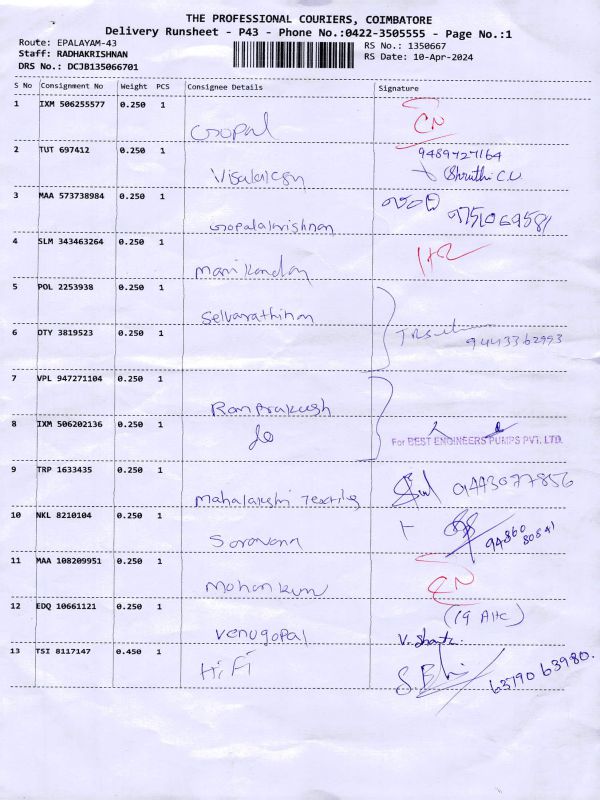 THE PROFESSIONAL COURIERS, COIMBATORE
Delivery Runsheet - P43 - Phone No.:0422-3505555 - Page No.:1
Route: EPALAYAM-43
Staff: RADHAKRISHNAN
DRS No.: DCJB135066701
RS No.: 1350667
RS Date: 10-Apr-2024
S No Consignment No Weight PCS Consignee Details Signature
1 IXM 506255577 0.250 1 Gopal CN
2 TUT 697412 0.250 1 Visalakshi 9489727164
Shruthi C.V
3 MAA 573738984 0.250 1 Gopalakrishnan 9751069581
4 SLM 343463264 0.250 1 Manikandan
5 POL 2253938 0.250 1 Selvarathinam
6 DTY 3819523 0.250 1 9443362993
7 VPL 947271104 0.250 1 Ram Prakash
8 IXM 506202136 0.250 1 do For BEST ENGINEERS PUMPS PVT. LTD.
9 TRP 1633435 0.250 1 Mahalakshi Textiles 9443077856
10 NKL 8210104 0.250 1 Saravana 94860
80841
11 MAA 108209951 0.250 1 Mohan Kum CN
12 EDQ 10661121 0.250 1 Venugopal
13 TSI 8117147 0.450 1 HiFi 63790 63980.